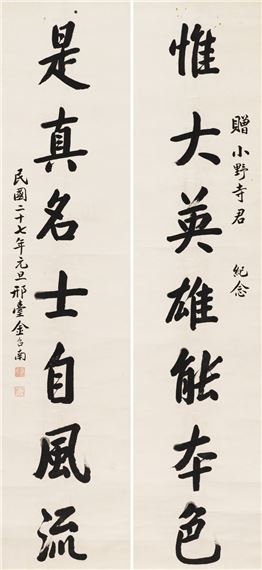 贈小野寺君 紀念
惟大英雄能本色
是真名士自風流
民國二十七年元旦邢臺金台南